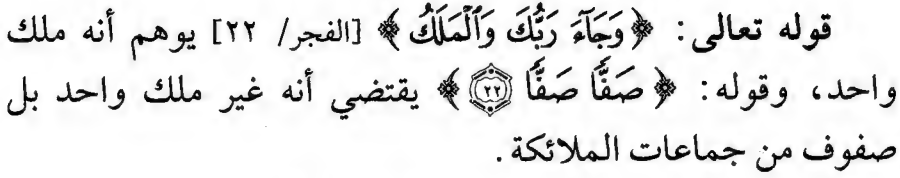 قوله تعالى: ﴿وَجَآءَ رَبُّكَ وَٱلْمَلَكُ﴾ [الفجر/ ٢٢] يوهم أنه ملك
واحد، وقوله: ﴿صَفًّا صَفًّا ۝٢٢﴾ يقتضي أنه غير ملك واحد بل
صفوف من جماعات الملائكة.